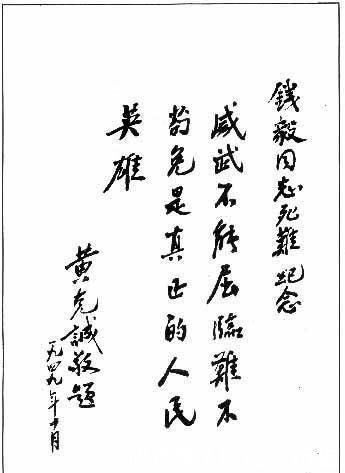 錢毅同志死難紀念
威武不能屈臨難不
苟免是真正的人民
英雄
黄克誠敬題
一九四九年十月